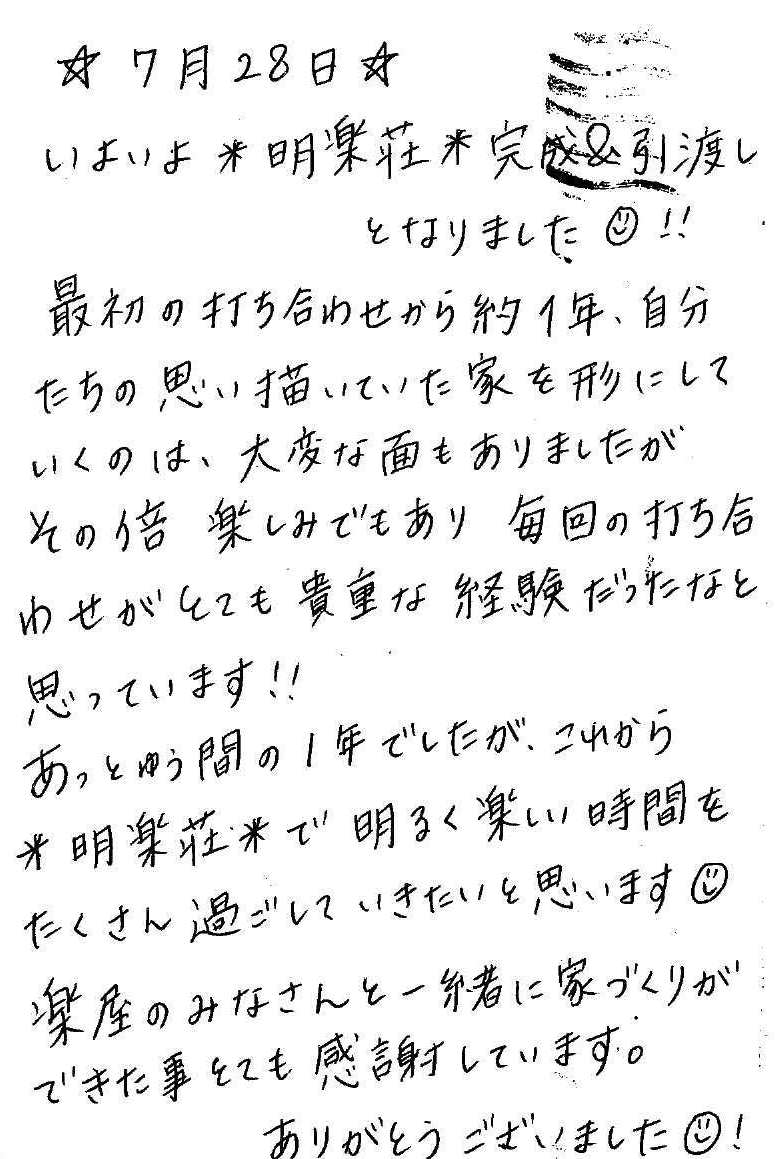 ☆ 7月28日 ☆
いよいよ *明楽荘* 完成&引渡し
となりました ☺ !!
最初の打ち合わせから約1年、自分
たちの思い描いていた家を形にして
いくのは、大変な面もありましたが
その倍 楽しみでもあり 毎回の打ち合
わせがとても貴重な経験だったなと
思っています!!
あっとゆう間の1年でしたが、これから
*明楽荘*で明るく楽しい時間を
たくさん過ごしていきたいと思います☺
楽屋のみなさんと一緒に家づくりが
できた事とても感謝しています。
ありがとうございました☺!